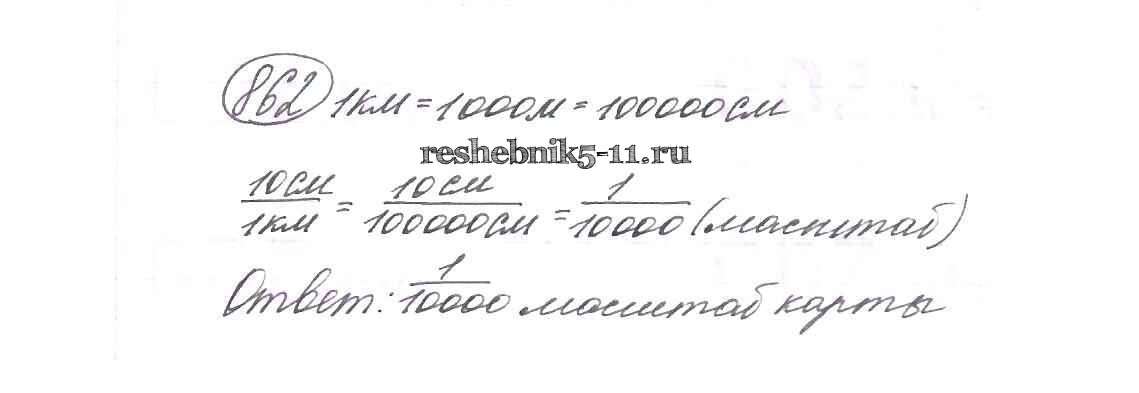 862 1км = 1000м = 100000см
reshebnik5-11.ru
10см/1км = 10см/100000см = 1/10000 (масштаб)
Ответ: 1/10000 масштаб карты